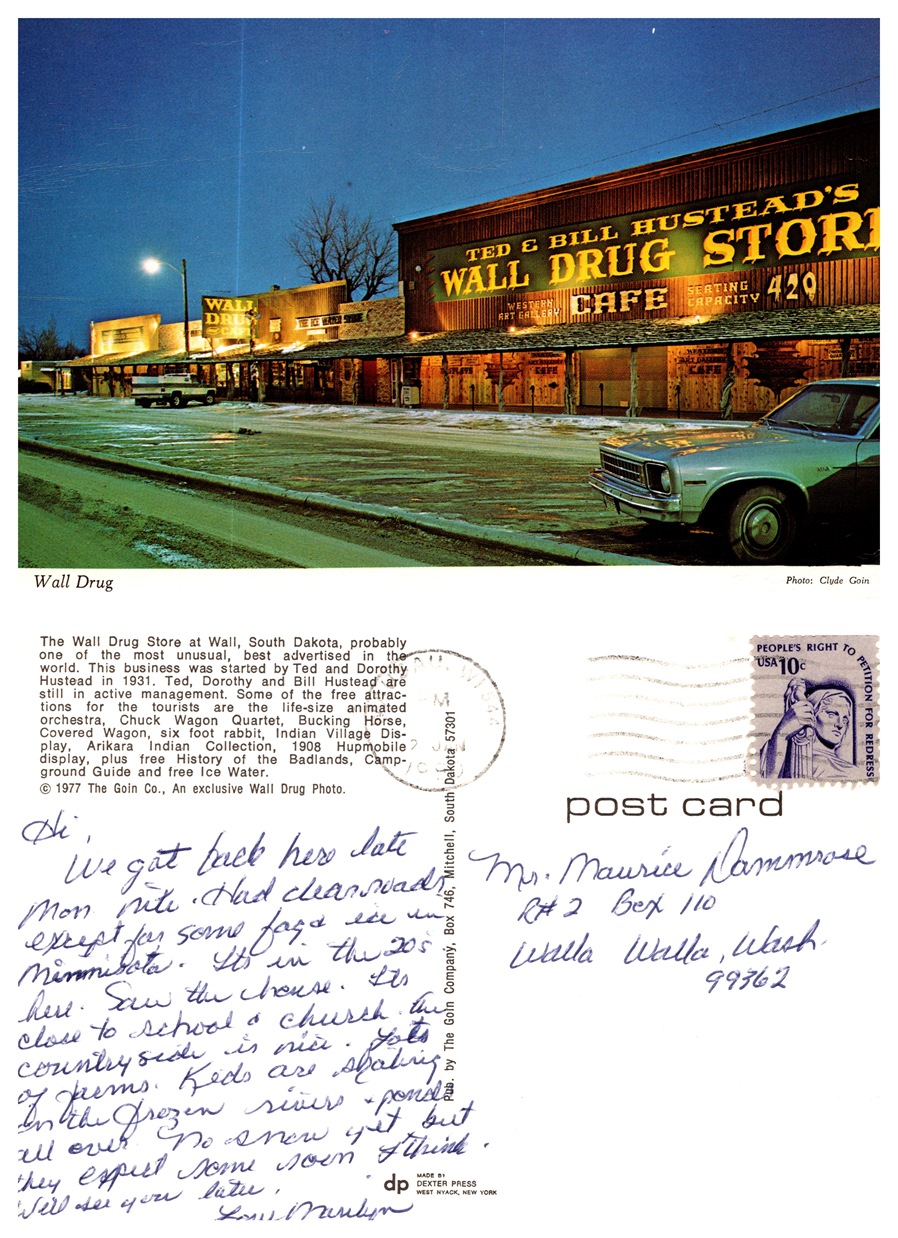 TED & BILL HUSTEAD'S
WALL DRUG STORE
WESTERN
ART GALLERY
CAFE
SEATING
CAPACITY
429
WALL
DRUG
CAFE
Wall Drug
Photo: Clyde Goin
The Wall Drug Store at Wall, South Dakota, probably
one of the most unusual, best advertised in the
world. This business was started by Ted and Dorothy
Hustead in 1931. Ted, Dorothy and Bill Hustead are
still in active management. Some of the free attrac-
tions for the tourists are the life-size animated
orchestra, Chuck Wagon Quartet, Bucking Horse,
Covered Wagon, six foot rabbit, Indian Village Dis-
play, Arikara Indian Collection, 1908 Hupmobile
display, plus free History of the Badlands, Camp-
ground Guide and free Ice Water.
© 1977 The Goin Co., An exclusive Wall Drug Photo.
2 JAN
PEOPLE'S RIGHT TO PETITION FOR REDRESS
USA 10c
post card
Pub. by The Goin Company, Box 746, Mitchell, South Dakota 57301
Hi,
We got back here late
Mon. nite. Had clear roads,
except for some fog & ice in
Minnisota. Its in the 20's
here. Saw the house. Its
close to school & church. the
countryside is nice. Lots
of farms. Kids are skating
on the frozen rivers & ponds
all over. No snow yet but
they expect some soon I think.
Will see you later.
Love Marilyn
Mr. Maurice Dammrose
Rt# 2 Box 110
Walla Walla, Wash.
99362
dp
MADE BY
DEXTER PRESS
WEST NYACK, NEW YORK